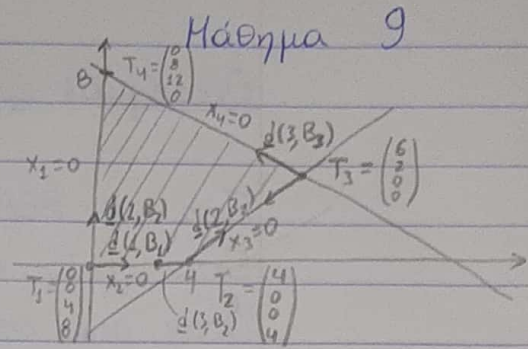 Μάθημα 9
8
T₄ = (0 8 12 0)
x₄=0
d(3,B₃)
x₁=0
T₃ = (6 2 0 0)
d(2,B₁)
d(2,B₃)
d(1,B₁)
x₃=0
T₁ = (0 0 4 8)
x₂=0
4
T₂ = (4 0 0 4)
d(3,B₂)